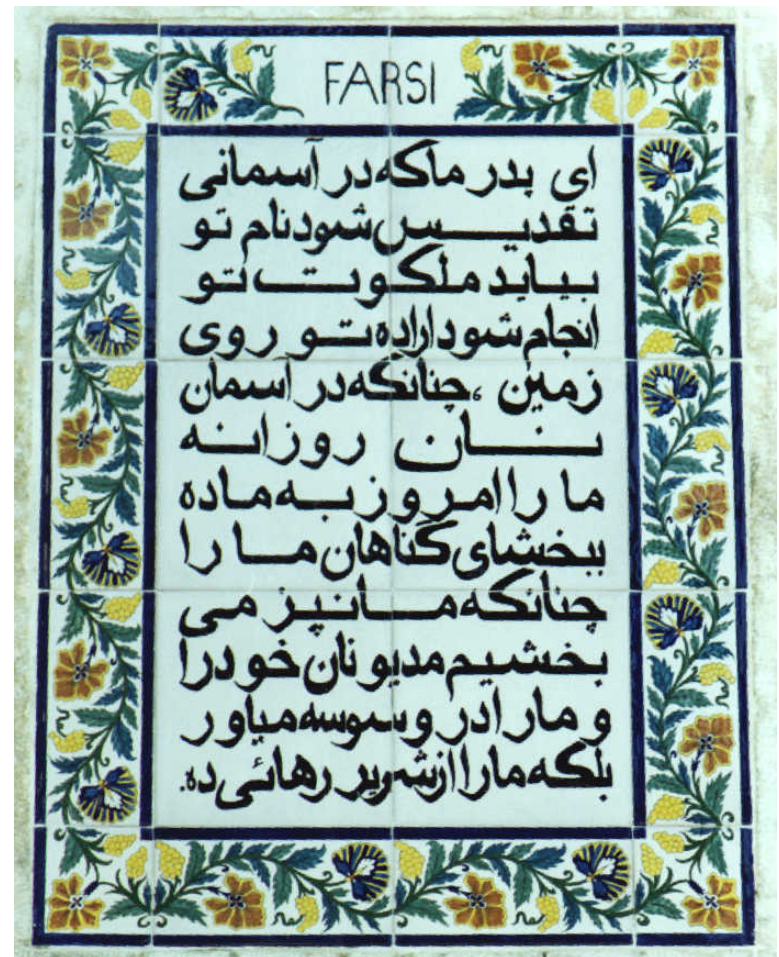 FARSI
ای پدر ماکه در آسمانی
تقدیس شود نام تو
بیاید ملکوت تو
انجام شود اراده تو روی
زمین ، چنانکه در آسمان
نان روزانه
ما را امروز به ما ده
ببخشای گناهان ما را
چنانکه ما نیز می
بخشیم مدیونان خود را
و ما را در وسوسه میاور
بلکه ما را از شریر رهائی ده.